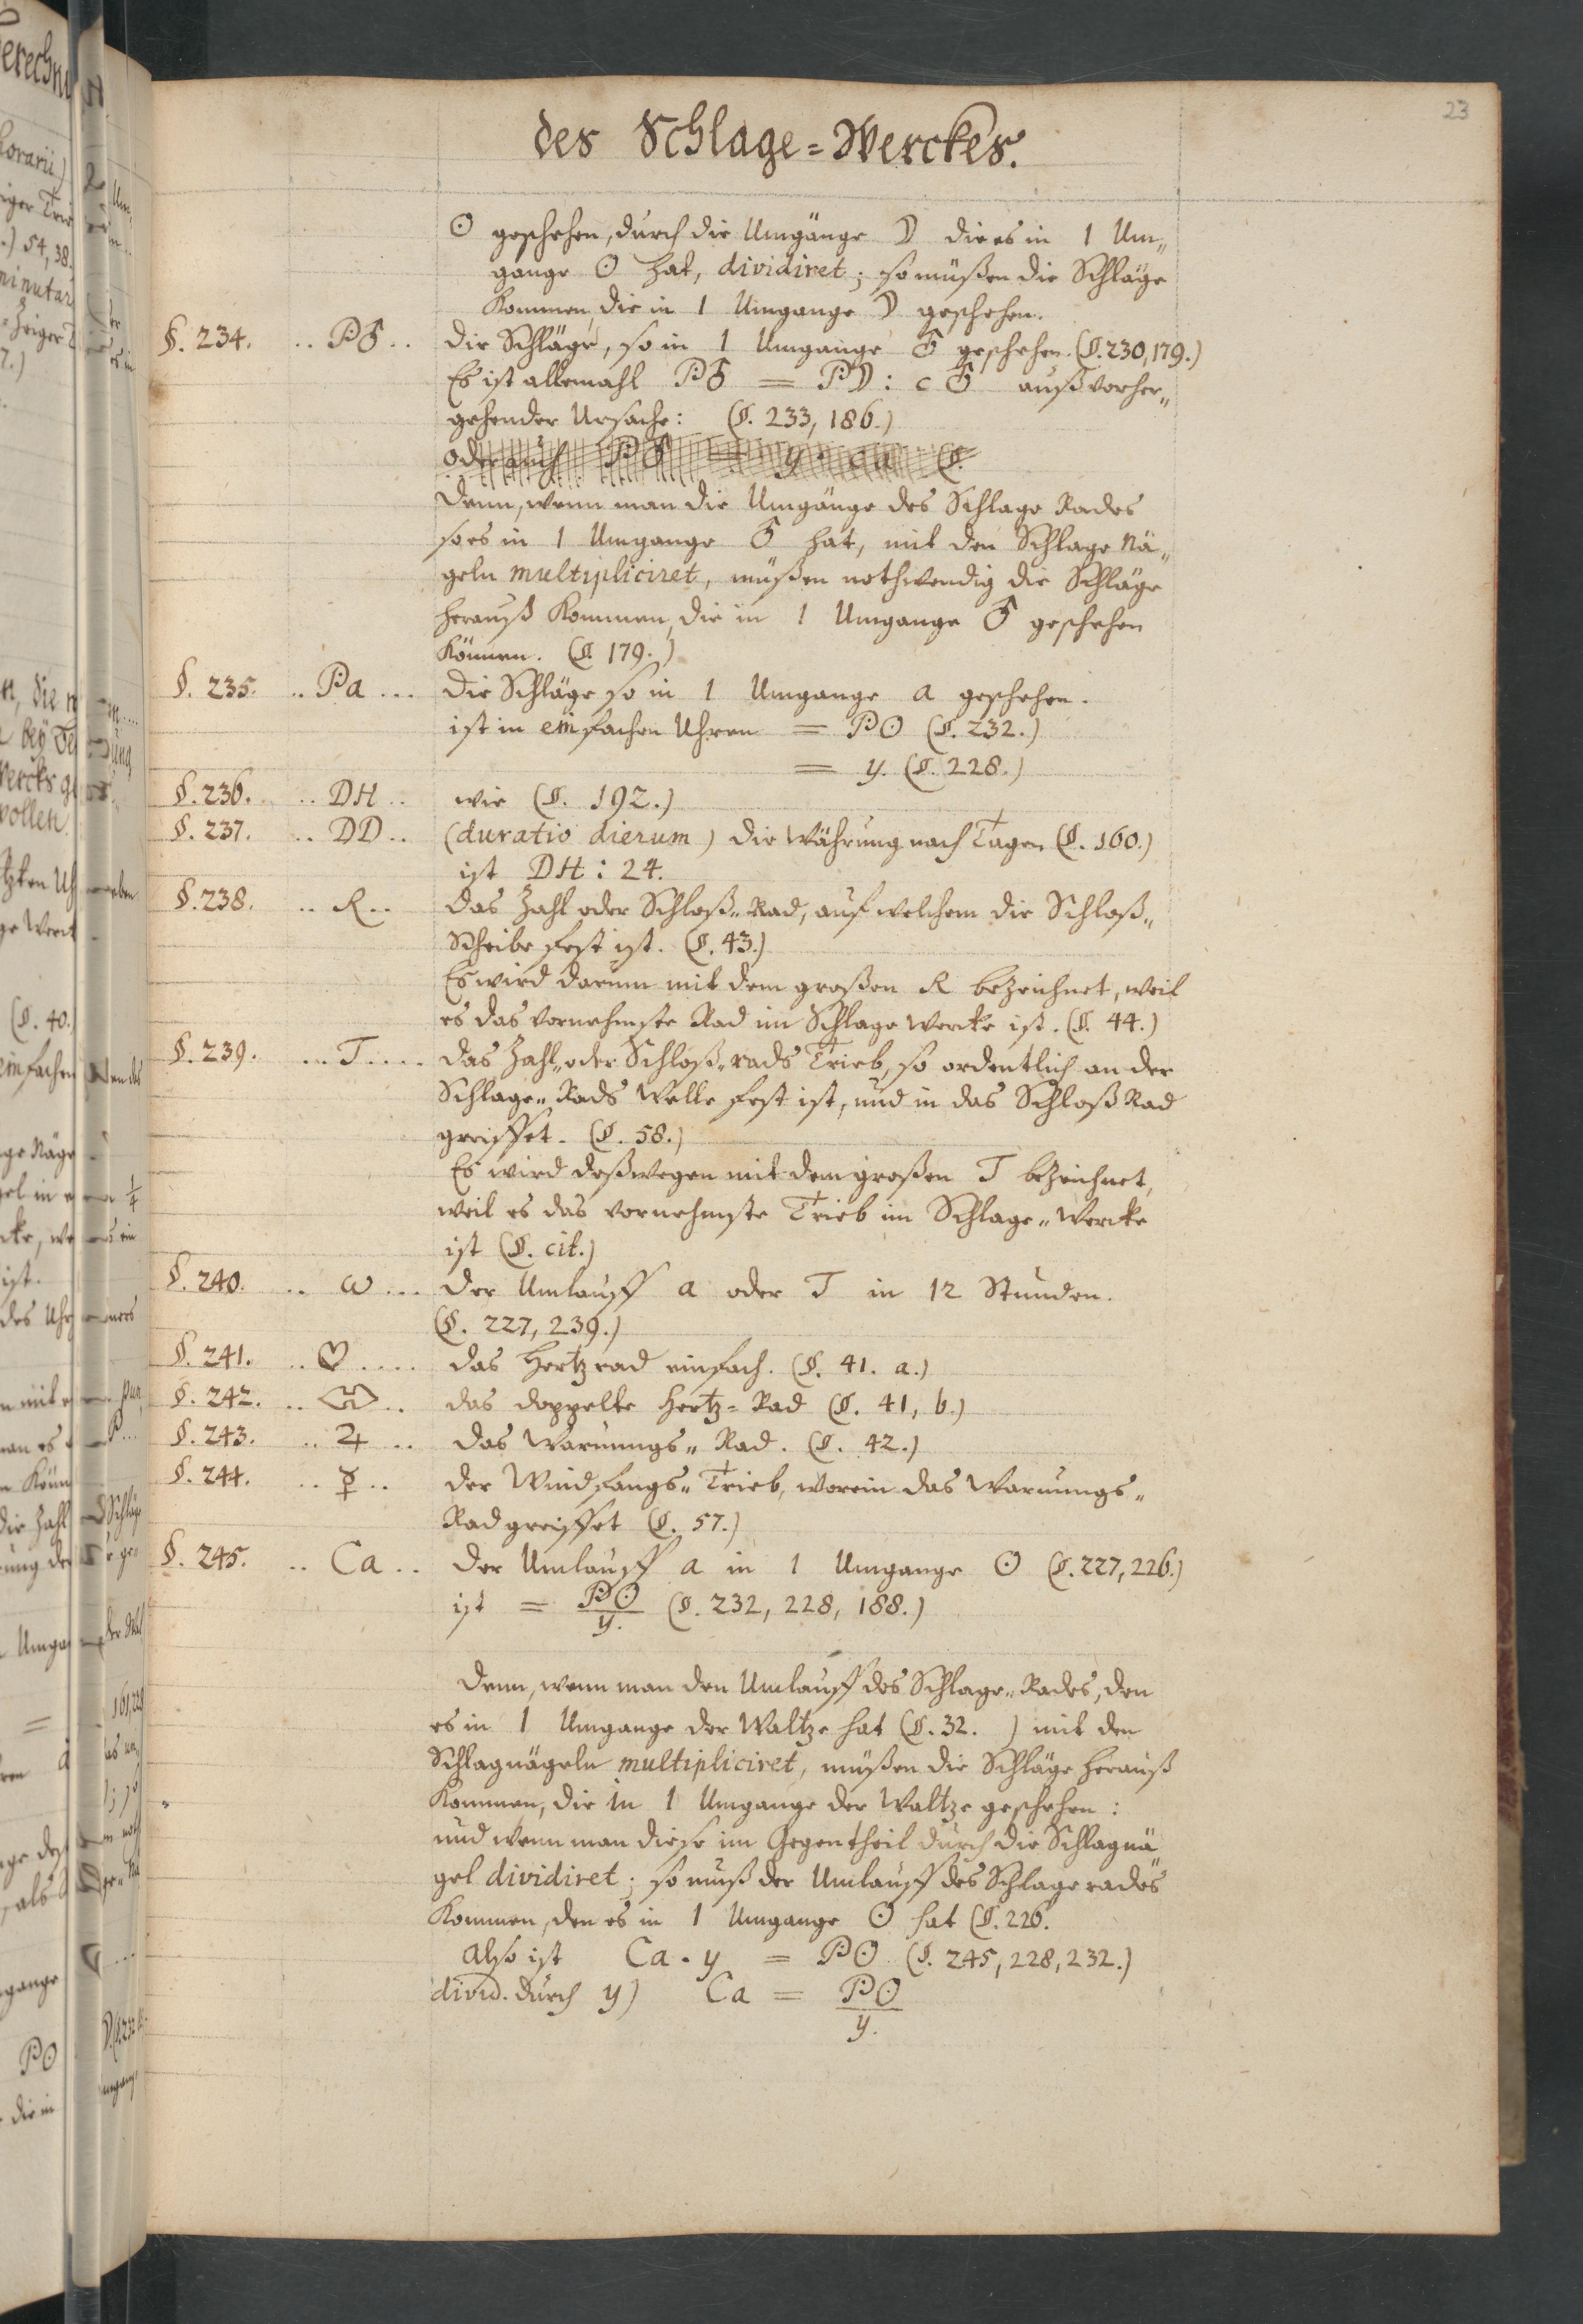 23
des Schlage=Werckes.
☉ geschehen, durch die Umgänge ☽ die es in 1 Um„
gange ☉ hat, dividiret; so müßen die Schläge
kommen, die in 1 Umgange ☽ geschehen.
§. 234. .. P♂ .. die Schläge, so in 1 Umgange ♂ geschehen. (§. 230, 179.)
Es ist allemahl P♂ = P☽ : c ♂ auß vorher„
gehender Ursache: (§. 233, 186.)
oder auch P♂ = y
Denn, wenn man die Umgänge des Schlage Rades
so es in 1 Umgange ♂ hat, mit den Schlage Nä„
geln multipliciret, müßen nothwendig die Schläge
herauß kommen, die in 1 Umgange ♂ geschehen
können. (§. 179.)
§. 235. .. Pa ... die Schläge so in 1 Umgange a geschehen.
ist in einfachen Uhren = P☉ (§. 232.)
= y. (§. 228.)
§. 236. .. DH .. wie (§. 192.)
§. 237. .. DD .. (duratio dierum) die Währung nach Tagen (§. 160.)
ist DH : 24.
§. 238. .. R .. das Zahl oder Schloß„Rad, auf welchem die Schloß„
Scheibe fest ist. (§. 43.)
Es wird darum mit dem großen R bezeichnet, weil
es das vornehmste Rad im Schlage Wercke ist. (§. 44.)
§. 239. ... T .... das Zahl„ oder Schloß„rads Trieb, so ordentlich an der
Schlage„Rads Welle fest ist, und in das Schloß Rad
greiffet. (§. 58.)
Es wird deßwegen mit dem großen T bezeichnet,
weil es das vornehmste Trieb im Schlage„Wercke
ist (§. cit.)
§. 240. .. ω ... der Umlauff a oder T in 12 Stunden.
(§. 227, 239.)
§. 241. .. ♡ .... das Hertzrad einfach. (§. 41. a.)
§. 242. .. .. das doppelte Hertz=Rad (§. 41, b.)
§. 243. .. ♃ .. das Warnungs„Rad. (§. 42.)
§. 244. .. ☿ .. der Windfangs„Trieb, worein das Warnungs„
Rad greiffet (§. 57.)
§. 245. .. Ca .. der Umlauff a in 1 Umgange ☉ (§. 227, 226.)
ist = P☉/y. (§. 232, 228, 188.)
Denn, wenn man den Umlauff des Schlage„Rades, den
es in 1 Umgange der Waltze hat (§. 32. ) mit den
Schlagnägeln multipliciret, müßen die Schläge herauß
kommen, die in 1 Umgange der Waltze geschehen:
und wenn man diese im Gegentheil durch die Schlagnä„
gel dividiret; so muß der Umlauff des Schlagerades
kommen, den es in 1 Umgange ☉ hat (§. 226.
Also ist Ca . y = P☉ (§. 245, 228, 232.)
divid. durch y) Ca = P☉/y.